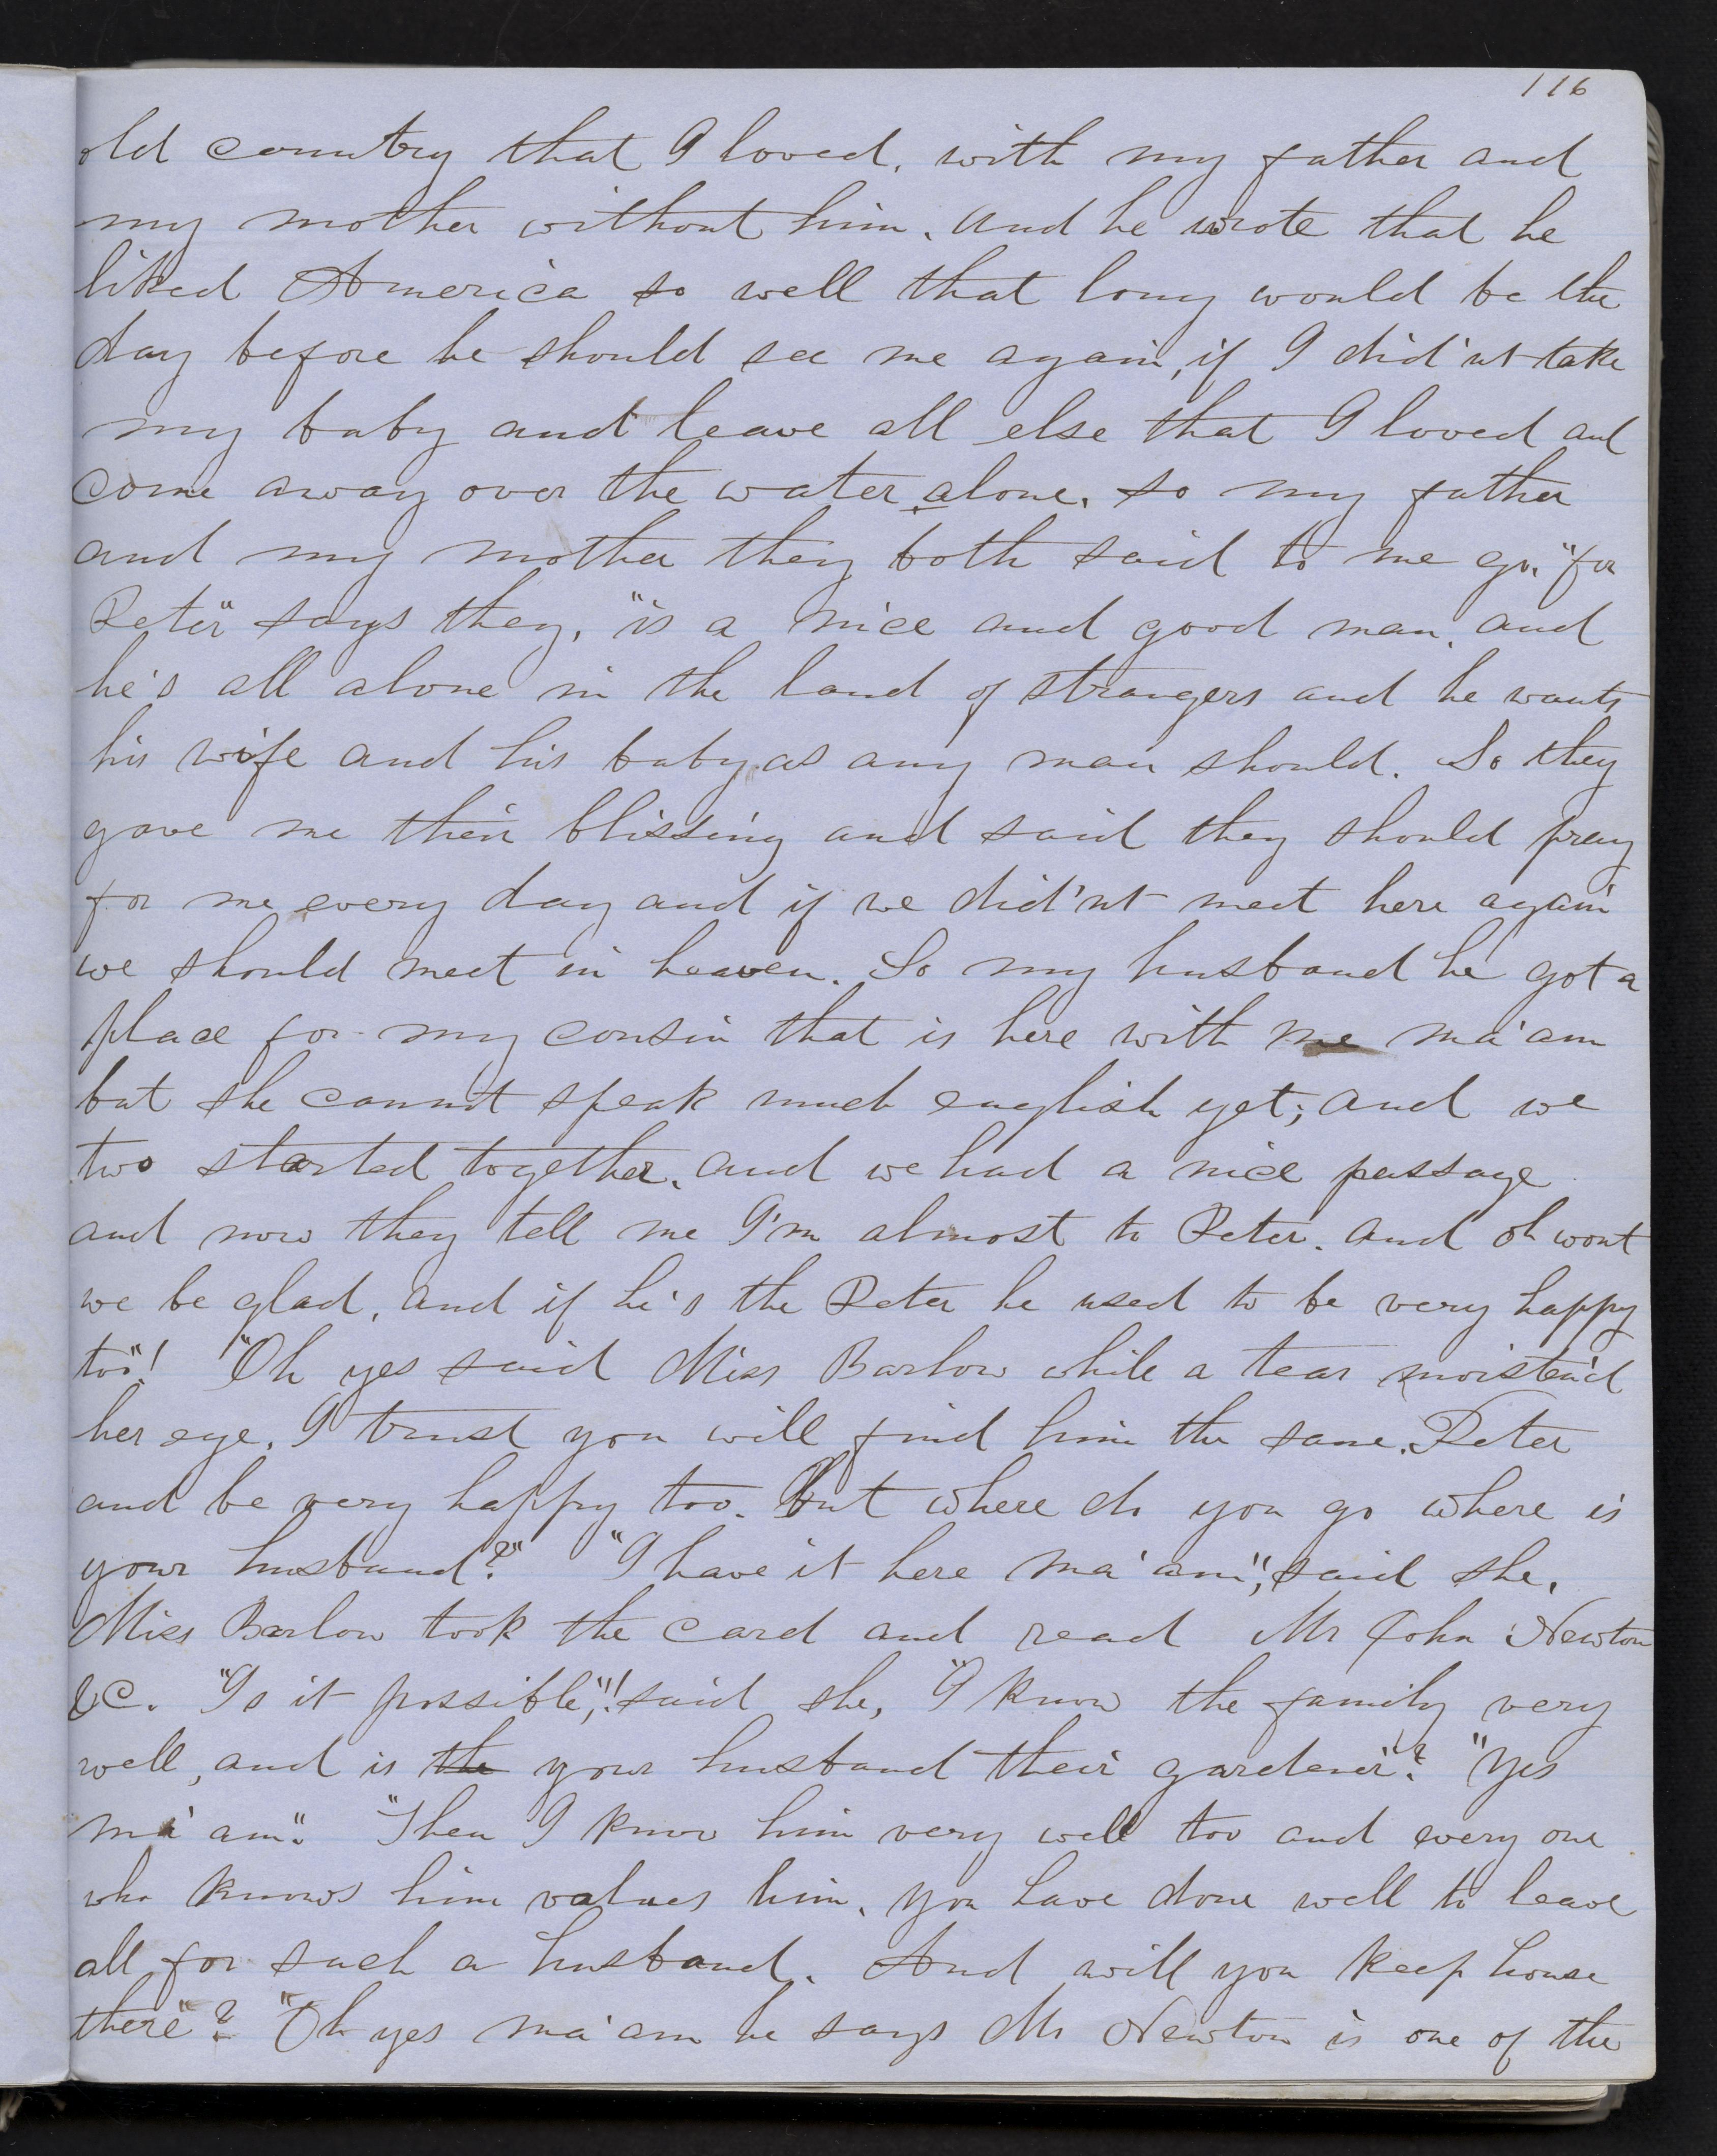 116
old country that I loved, with my father and
my mother without him. And he wrote that he
liked America so well that long would be the
day before he should see me again, if I did'nt take
my baby and leave all else that I loved and
come away over the water alone. So my father
and my mother they both said to me go, "for
Peter" says they, "is a nice and good man, and
he's all alone in the land of strangers and he wants
his wife and his baby as any man should. So they
gave me their blissing and said they should pray
for me every day and if we did'nt meet here again
we should meet in heaven. So my husband he got a
place for my cousin that is here with me ma'am
but she cannot speak much english yet; and we
two started together, and we had a nice passage
and now they tell me I'm almost to Peter. And oh wont
we be glad, and if he's the Peter he used to be very happy
too"! "Oh yes said Miss Barlow while a tear moisten'd
her eye. I trust you will find him the same Peter
and be very happy too. But where do you go where is
your husband?" "I have it here ma'am", said she.
Miss Barlow took the card and read Mr John Newton
&c. "Is it possible",! said she, "I know the family very
well, and is the your husband their gardener"? "Yes
ma'am". "Then I know him very well too and every one
who knows him values him, you have done well to leave
all for such a husband. And will you keep house
there"? "Oh yes ma'am he says Mr Newton is one of the